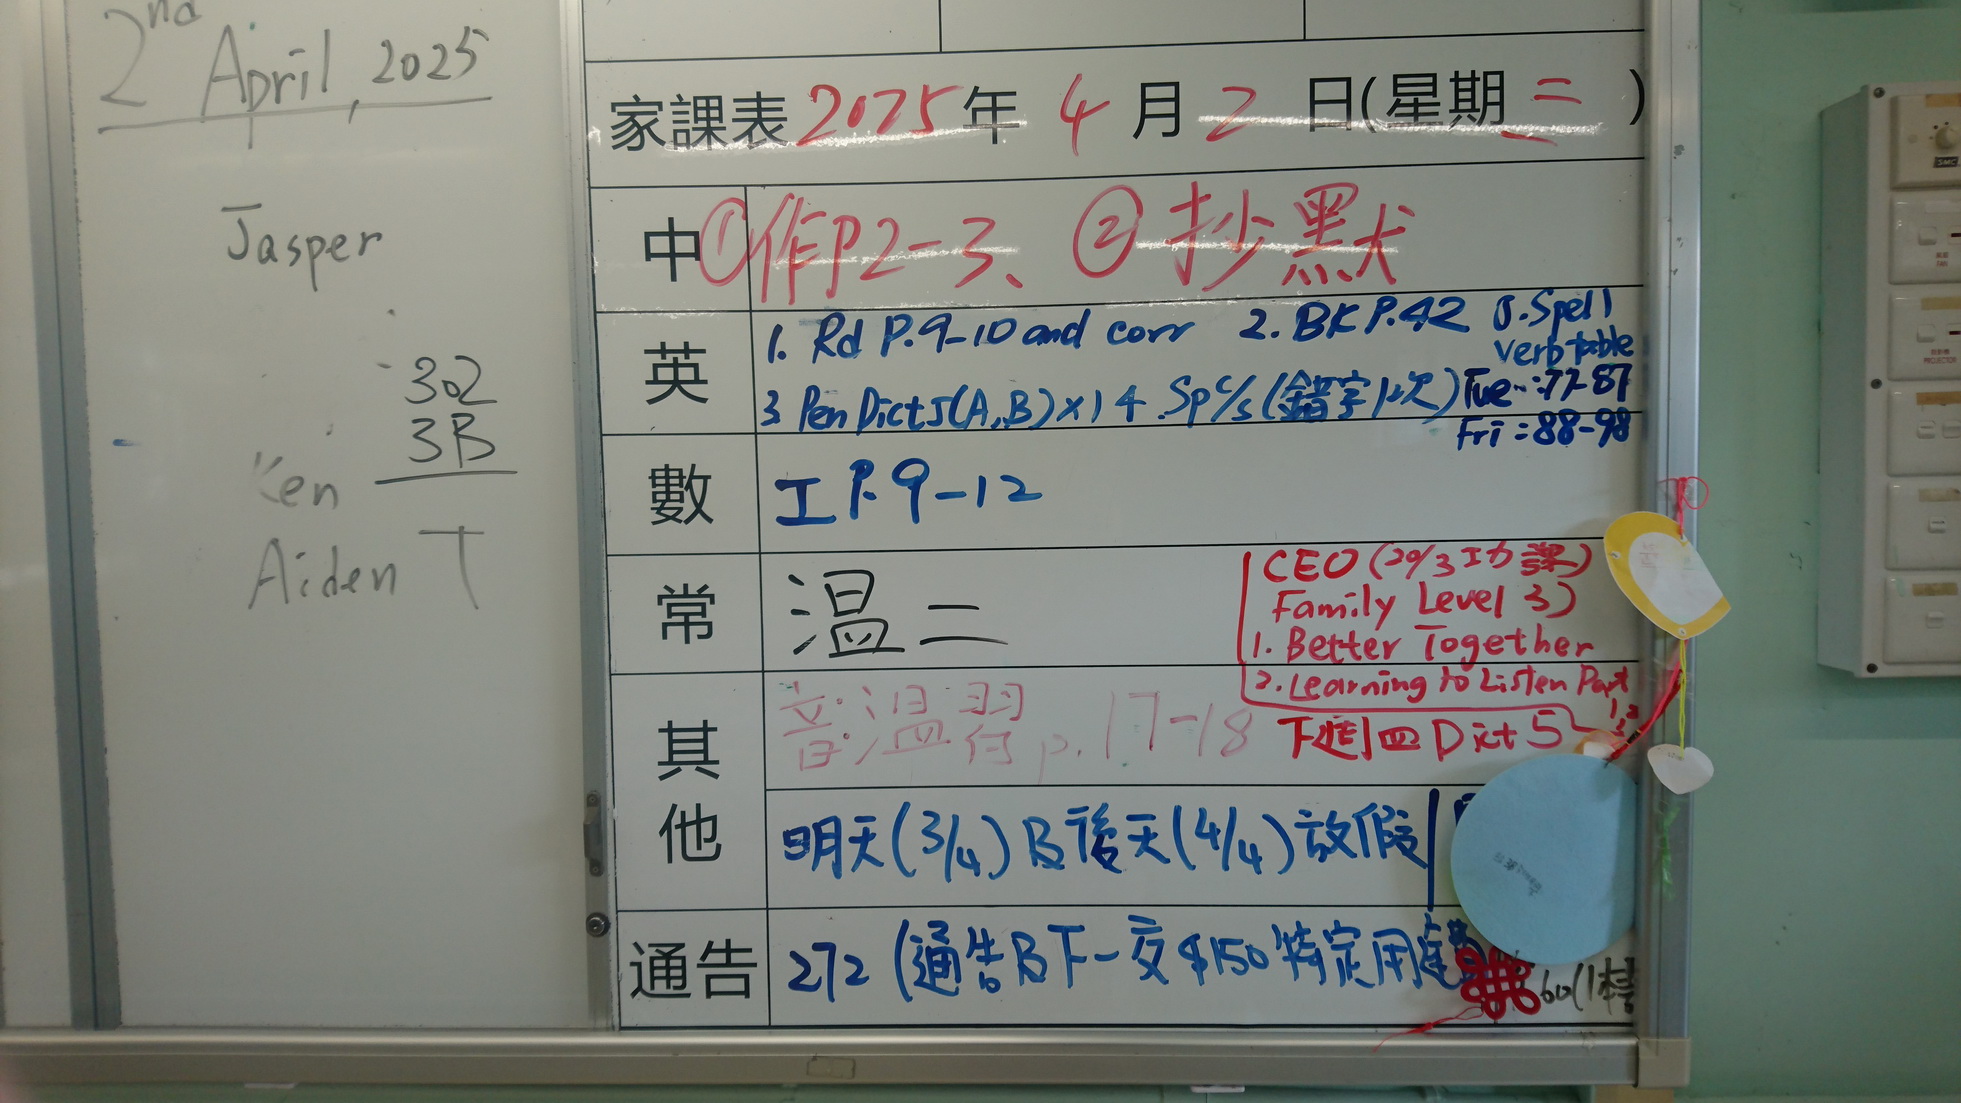 2nd April, 2025
Jasper
302
3B
Ken
Aiden T
家課表 2025年 4月 2日(星期三)
中 ①作P2-3、②抄默
英 1. Rd P.9-10 and corr 2. BK P.42 5. Spell
verb table
3 Pen Dict 5(A,B)×1 4. Sp c/s (錯字1次) Tue: 77-87
Fri: 88-98
數 工 P.9-12
常 溫二
CEO (20/3 功課)
Family Level 3)
1. Better Together
2. Learning to Listen Part
1,2
其他 音:溫習 p.17-18
下週四 Dict 5
明天(3/4)及後天(4/4)放假
通告 272 (通告及下一交$150特定用途
60(1樓